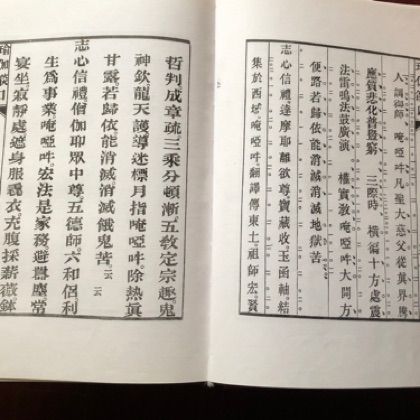 人調御師唵啞吽凡聖大慈父從眞界騰
應質悲化普豎窮三際時橫徧十方處震
法雷鳴法鼓廣演權實教唵啞吽大開方
便路若歸依能消滅消滅地獄苦
志心信禮達摩耶離欲尊寶藏收玉函軸結
集於西域唵啞吽翻譯傳東土祖師宏賢
哲判成章疏三乘分頓漸五教定宗趣鬼
神欽龍天護導迷標月指唵啞吽除熱眞
甘露若歸依能消滅消滅餓鬼苦云云
志心信禮僧伽耶眾中尊五德師六和侶利
生爲事業唵啞吽宏法是家務避囂塵常
宴坐寂靜處遮身服毳衣充腹採薪薇鉢